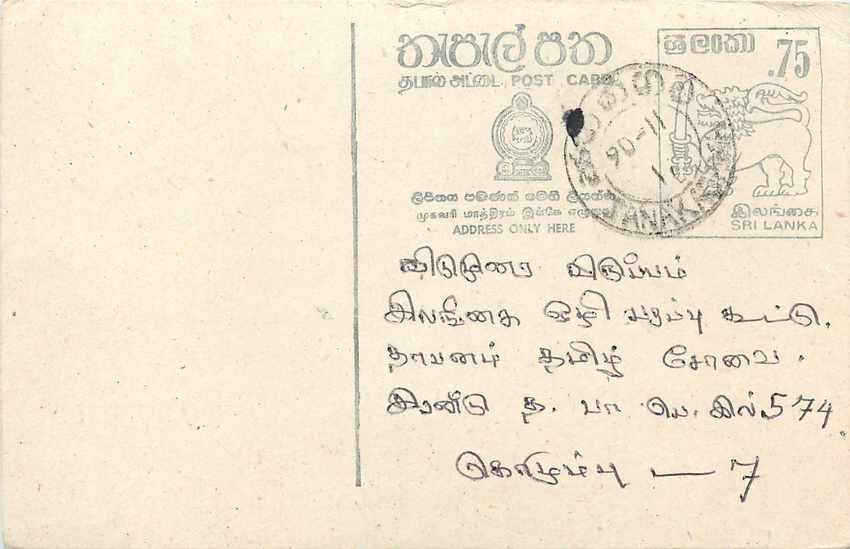 තැපැල් පත
ශ්‍රී ලංකා
.75
தபால் அட்டை POST CARD
90-11
1
ලිපිනය පමණක් මෙහි ලියන්න
முகவரி மாத்திரம் இங்கே எழுதவும்
ADDRESS ONLY HERE
இலங்கை
SRI LANKA
விடுமுறை விருப்பம்
இலங்கை ஒலி பரப்பு கூட்டு.
தாபனம் தமிழ் சேவை.
இரண்டு த. பா பெ. இல் 574
கொழும்பு — 7